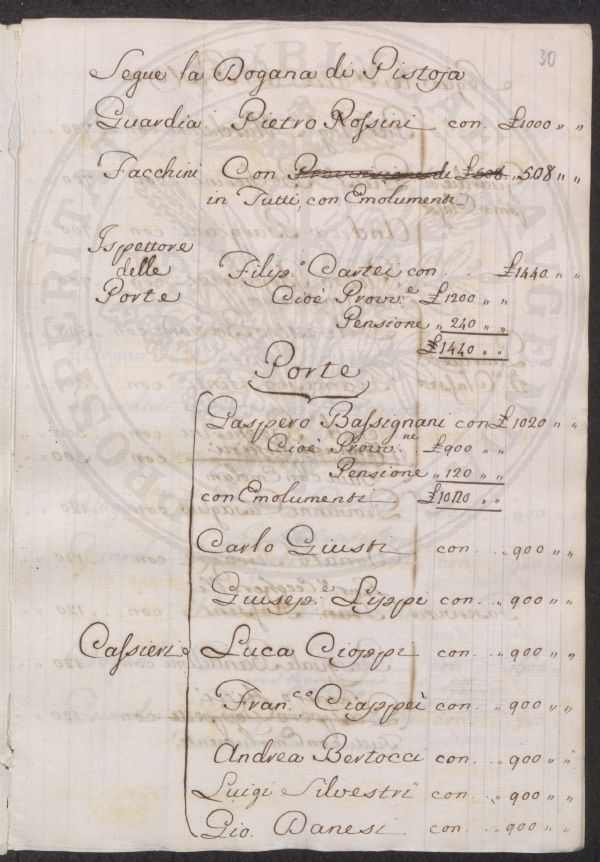 30
Segue la Dogana di Pistoja
Guardia Pietro Rossini con. £1000 " "
Facchini Con Provvisione di £508 " 508 " "
in Tutti, con Emolumenti
Ispettore
delle
Porte
Filip.º Cartei con . . £1440 " "
Cioè Provv.e £1200 " "
Pensione " 240 " "
£1440 " "
Porte
Gaspero Bassignani con £1020 " "
Cioè Provv.ne £900 " "
Pensione " 120 " "
con Emolumenti £1020 " "
Carlo Giusti con . . " 900 " "
Giusep.e Lippi con . . " 900 " "
Cassieri Luca Cioppi con . . " 900 " "
Fran.co Ciappei con . . " 900 " "
Andrea Bertocci con . . " 900 " "
Luigi Silvestri con . . " 900 " "
Gio. Danesi con . . " 900 " "